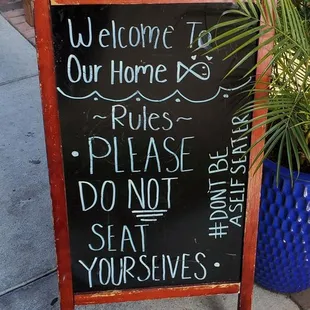 Welcome To
Our Home
~Rules~
• PLEASE
DO NOT
SEAT
YOURSELVES •
#DON'T BE
A SELF SEATER